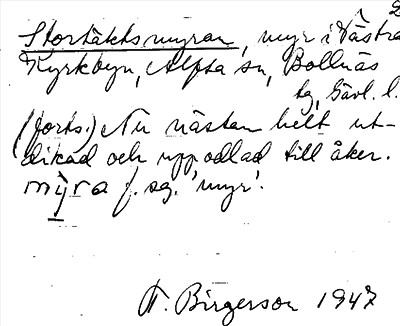 2
Stortäktsmyran, myr i Västra
Kyrkbyn, Alfta sn, Bollnäs
tg, Gävl. l.
(forts.) Nu nästan helt ut-
dikad och uppodlad till åker.
myra f. sg. 'myr'.
F. Birgerson 1947